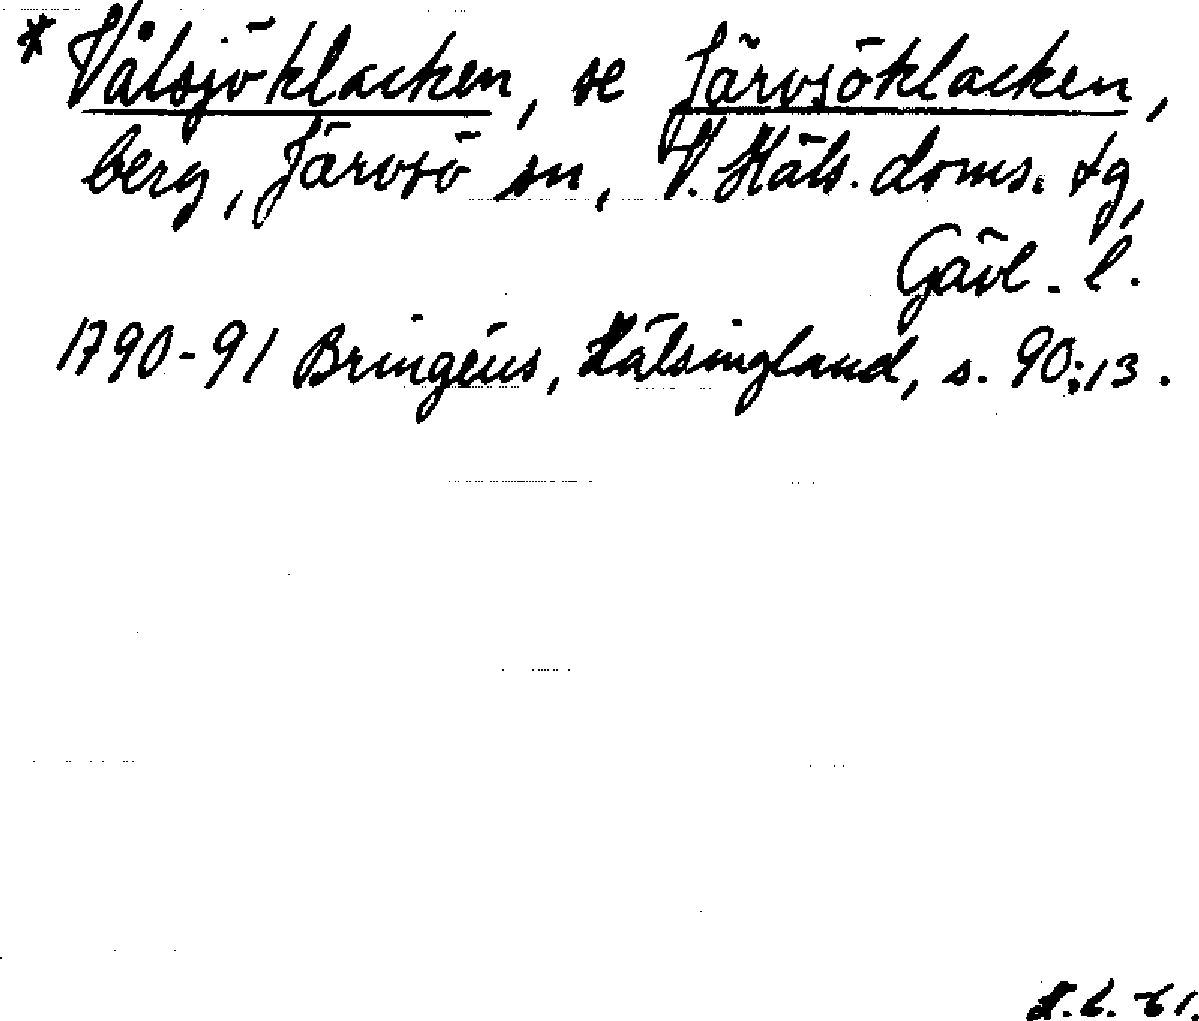 * Vålsjöklacken, se Järvsöklacken,
berg, Järvsö sn, V. Häls. doms. tg,
Gävl. l.
1790-91 Bringéus, Hälsingland, s. 90:13.